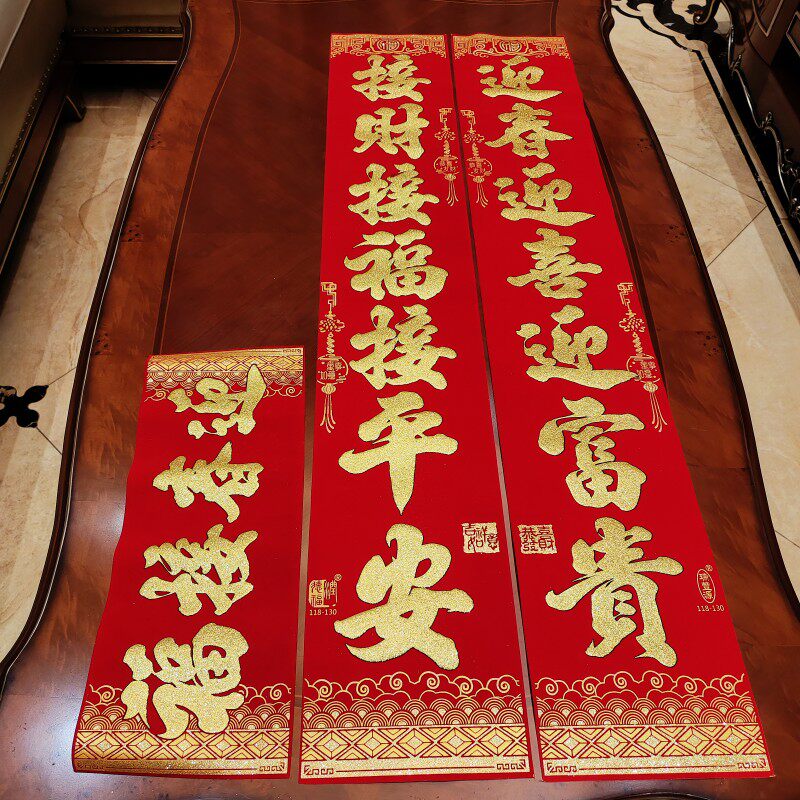 迎春迎喜迎富貴
接財接福接平安
迎春接福
118-130
118-130